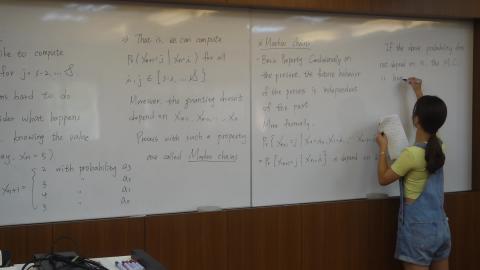 like to compute
for j = 1, 2, ...
ms hard to do
sider what happens
knowing the value
ay, Xn = 5)
Xn+1 = { 2 with probability a3
3 " a2
4 " a1
5 " a0
⇒ That is, we can compute
Pr(Xn+1 = j | Xn = i) for all
i, j ∈ {1, 2, ...
Moreover, the quantity doesn't
depend on Xn-1, Xn-2, ..., X0
Process with such a property
are called Markov chains
* Markov Chains
- Basic Property: Conditionally on
the present, the future behavior
of the process is independent
of the past
More formally,
Pr{Xn+1 = j | Xn = i,
= Pr{Xn+1 = j | Xn = i} is
If the above probability does
not depend on n, the M.C.
is